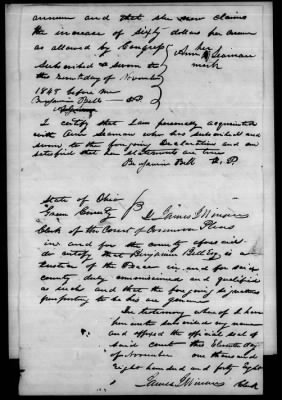 annum and that she now claims
the increase of sixty dollars per annum
as allowed by Congress
her
Ann Seaman
mark
Subscribed & sworn to
the day of November
1848 before me
Benjamin Bell J.P.
I certify that I am personally acquainted
with Ann Seaman who has subscribed and
sworn to the foregoing Declaration and am
satisfied that her statements are true
Benjamin Bell J. P.
State of Ohio
Green County } I James
Clerk of the Court of Common Pleas
in and for the county aforesaid
do certify that Benjamin Bell Esq is a
Justice of the Peace in and for said
county duly commissioned and qualified
as such and that the foregoing signatures
purporting to be his are genuine
In testimony whereof I have
hereunto subscribed my name
and affixed the official seal of
said court this Eleventh day
of November one thousand
Eight hundred and forty Eight
James Clerk